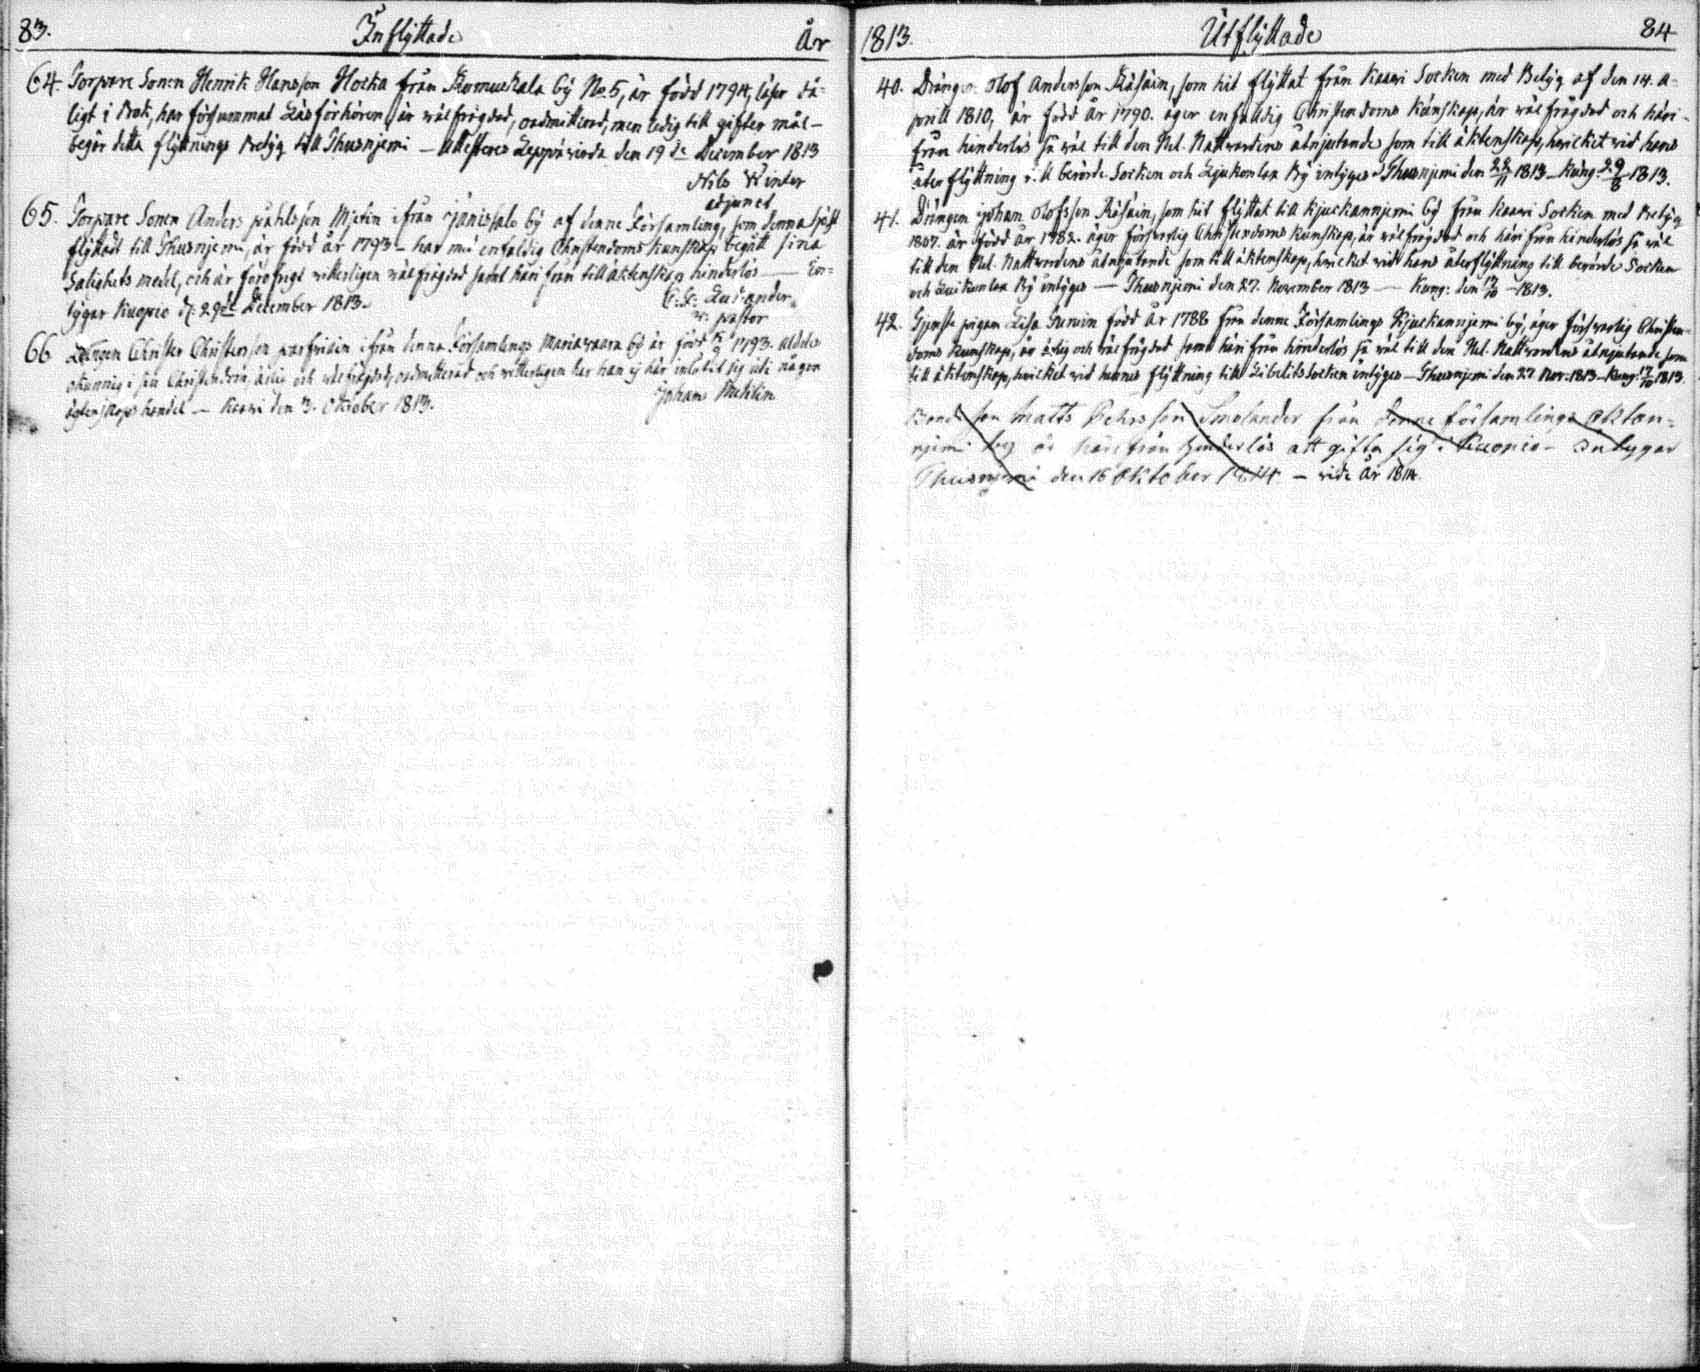 83. Inflyttade År
64. Torpare Sonen Henrik Hansson Hocka från Kornuskala bÿ No 5, är född 1794, läser då-
ligt i Bok, har försummat Läsförhören, är välfrägdad, oadmitterad, men ledig till gifter mål-
begär detta flyttnings Betyg till Thusnjemi — Attesteras Leppävirda den 19de December 1813
Nils Winter
adjunct
65. Torpare Sonen Anders påhlsson Mjetin ifrån Jänissalo bÿ af denne Församling, som denna
flyttadt till Thusnjemi, är född år 1793 — har med enfaldig Christendoms kunskap begått sina
Salighets medel, och är för öfrigt witterligen wälfrägdad samt härifrån till äktenskap hinderlös —
tygar Kuopio d: 29de December 1813.
v: pastor
66 Drengen Christer Christersson parfridin ifrån denna Församlings Mariavaara by är född 1793. Aldeles
okunnig i sin Christendom, ärlig och välfrägdad, oadmitterad och witterligen har han ej här inlåtit sig uti någon
ägtenskaps handel — Kaavi den 3. Oktober 1813.
Johan Mehlin
1813. Utflyttade 84
40. Drängen Olof Andersson Räsäin, som hit flyttat från Kaavi Socken med Betÿg af den 14. A-
prill 1810, är född År 1790. äger enfaldig Christendoms Kunskap, är välfrägdad och häri-
från hinderlös så väl till den Hel. Nattvardens åtnjutande som till äktenskap, hvilcket vid hans
återflyttning till berörde Socken och Bÿ intÿgas Thusnjemi den 22/11 1813 — Kung: 29/8 1813.
41. Drängen Johan Olofsson Räsäin, som hit flyttat till Kjuckannjemi bÿ från Kaavi Socken med Betÿg
1807. är född år 1782. äger försvarlig Christendoms kunskap, är välfrägdad och härifrån hinderlös så väl
till den Hel. Nattvardens åtnjutande som till äktenskap, hvilcket vidt hans återflyttning till berörde Socken
och Bÿ intÿgas — Thusnjemi den 27. November 1813 — Kung: den 17/10 1813.
42. Tjenste pigan Lisa Turuin född År 1788 från denne Församlings Kjuckannjemi bÿ, äger försvarlig Christen-
doms kunskap, är ärlig och välfrägdad samt härifrån hinderlös så väl till den Hel. Nattvardens åtnjutande som
till äktenskap, hvilcket vid hennes flyttning till Libelits Socken intÿgas — Thusnjemi den 27 Nov. 1813 — Kung: 17/10 1813.
Bonde son Matts Pehrsson Smolander från denne församlings Oktan-
njemi by är härifrån hinderlös att gifta sig i Kuopio — intygar
Thusnjemi den 16 Oktober 1814 — vide År 1814.